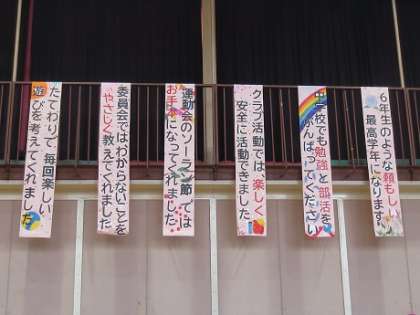 ６年生のような頼もしい
最高学年になります
中学校でも勉強と部活を
がんばってください
クラブ活動では、楽しく
安全に活動できました
運動会のソーラン節では
お手本になってくれました
委員会では、わからないことを
やさしく教えてくれました
たてわりで毎回楽しい
遊びを考えてくれました